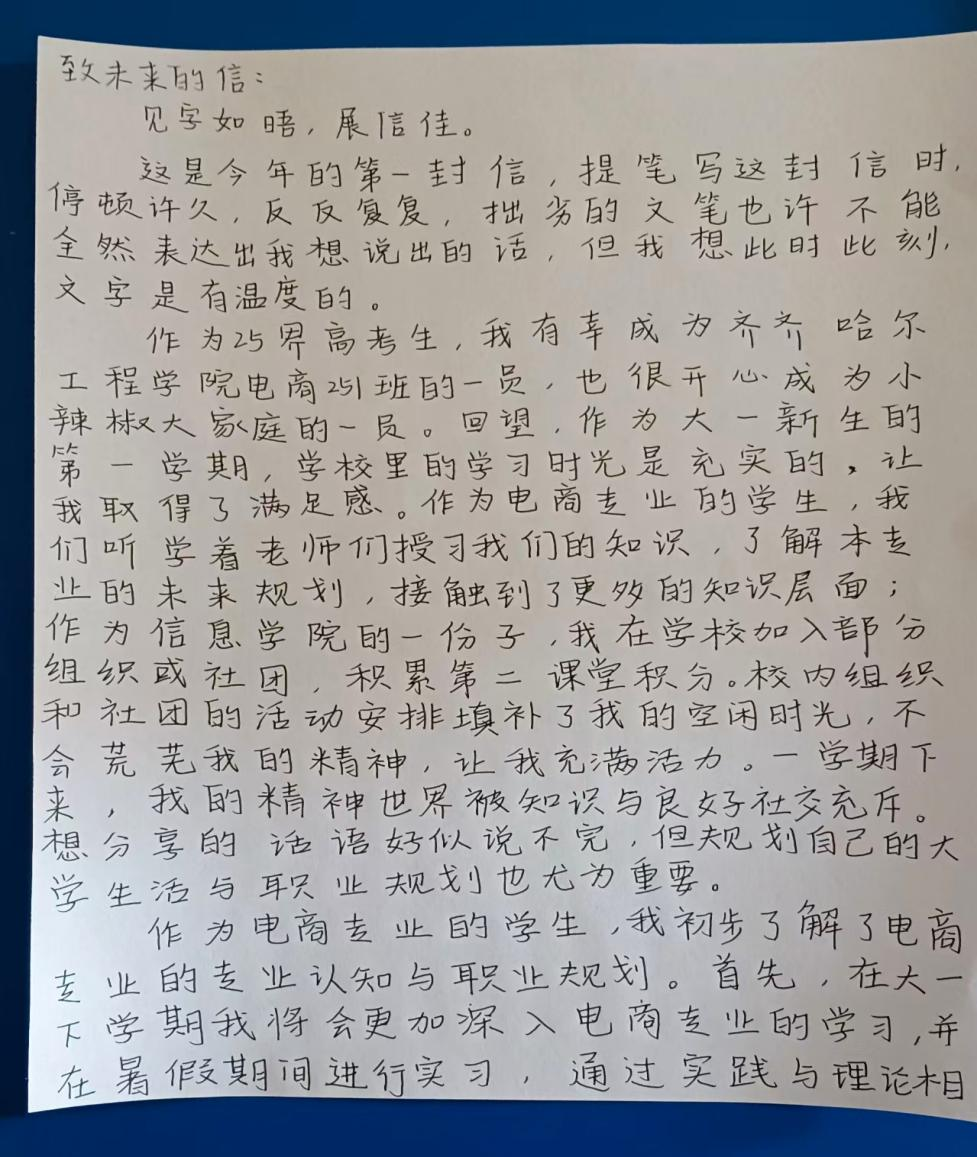 致未来的信：
见字如晤，展信佳。
这是今年的第一封信，提笔写这封信时，
停顿许久，反反复复，拙劣的文笔也许不能
全然表达出我想说出的话，但我想此时此刻，
文字是有温度的。
作为25界高考生，我有幸成为齐齐哈尔
工程学院电商251班的一员，也很开心成为小
辣椒大家庭的一员。回望，作为大一新生的
第一学期，学校里的学习时光是充实的，让
我取得了满足感。作为电商专业的学生，我
们听学着老师们授习我们的知识，了解本专
业的未来规划，接触到了更多的知识层面；
作为信息学院的一份子，我在学校加入部分
组织或社团，积累第二课堂积分。校内组织
和社团的活动安排填补了我的空闲时光，不
会荒芜我的精神，让我充满活力。一学期下
来，我的精神世界被知识与良好社交充斥。
想分享的话语好似说不完，但规划自己的大
学生活与职业规划也尤为重要。
作为电商专业的学生，我初步了解了电商
专业的专业认知与职业规划。首先，在大一
下学期我将会更加深入电商专业的学习，并
在暑假期间进行实习，通过实践与理论相